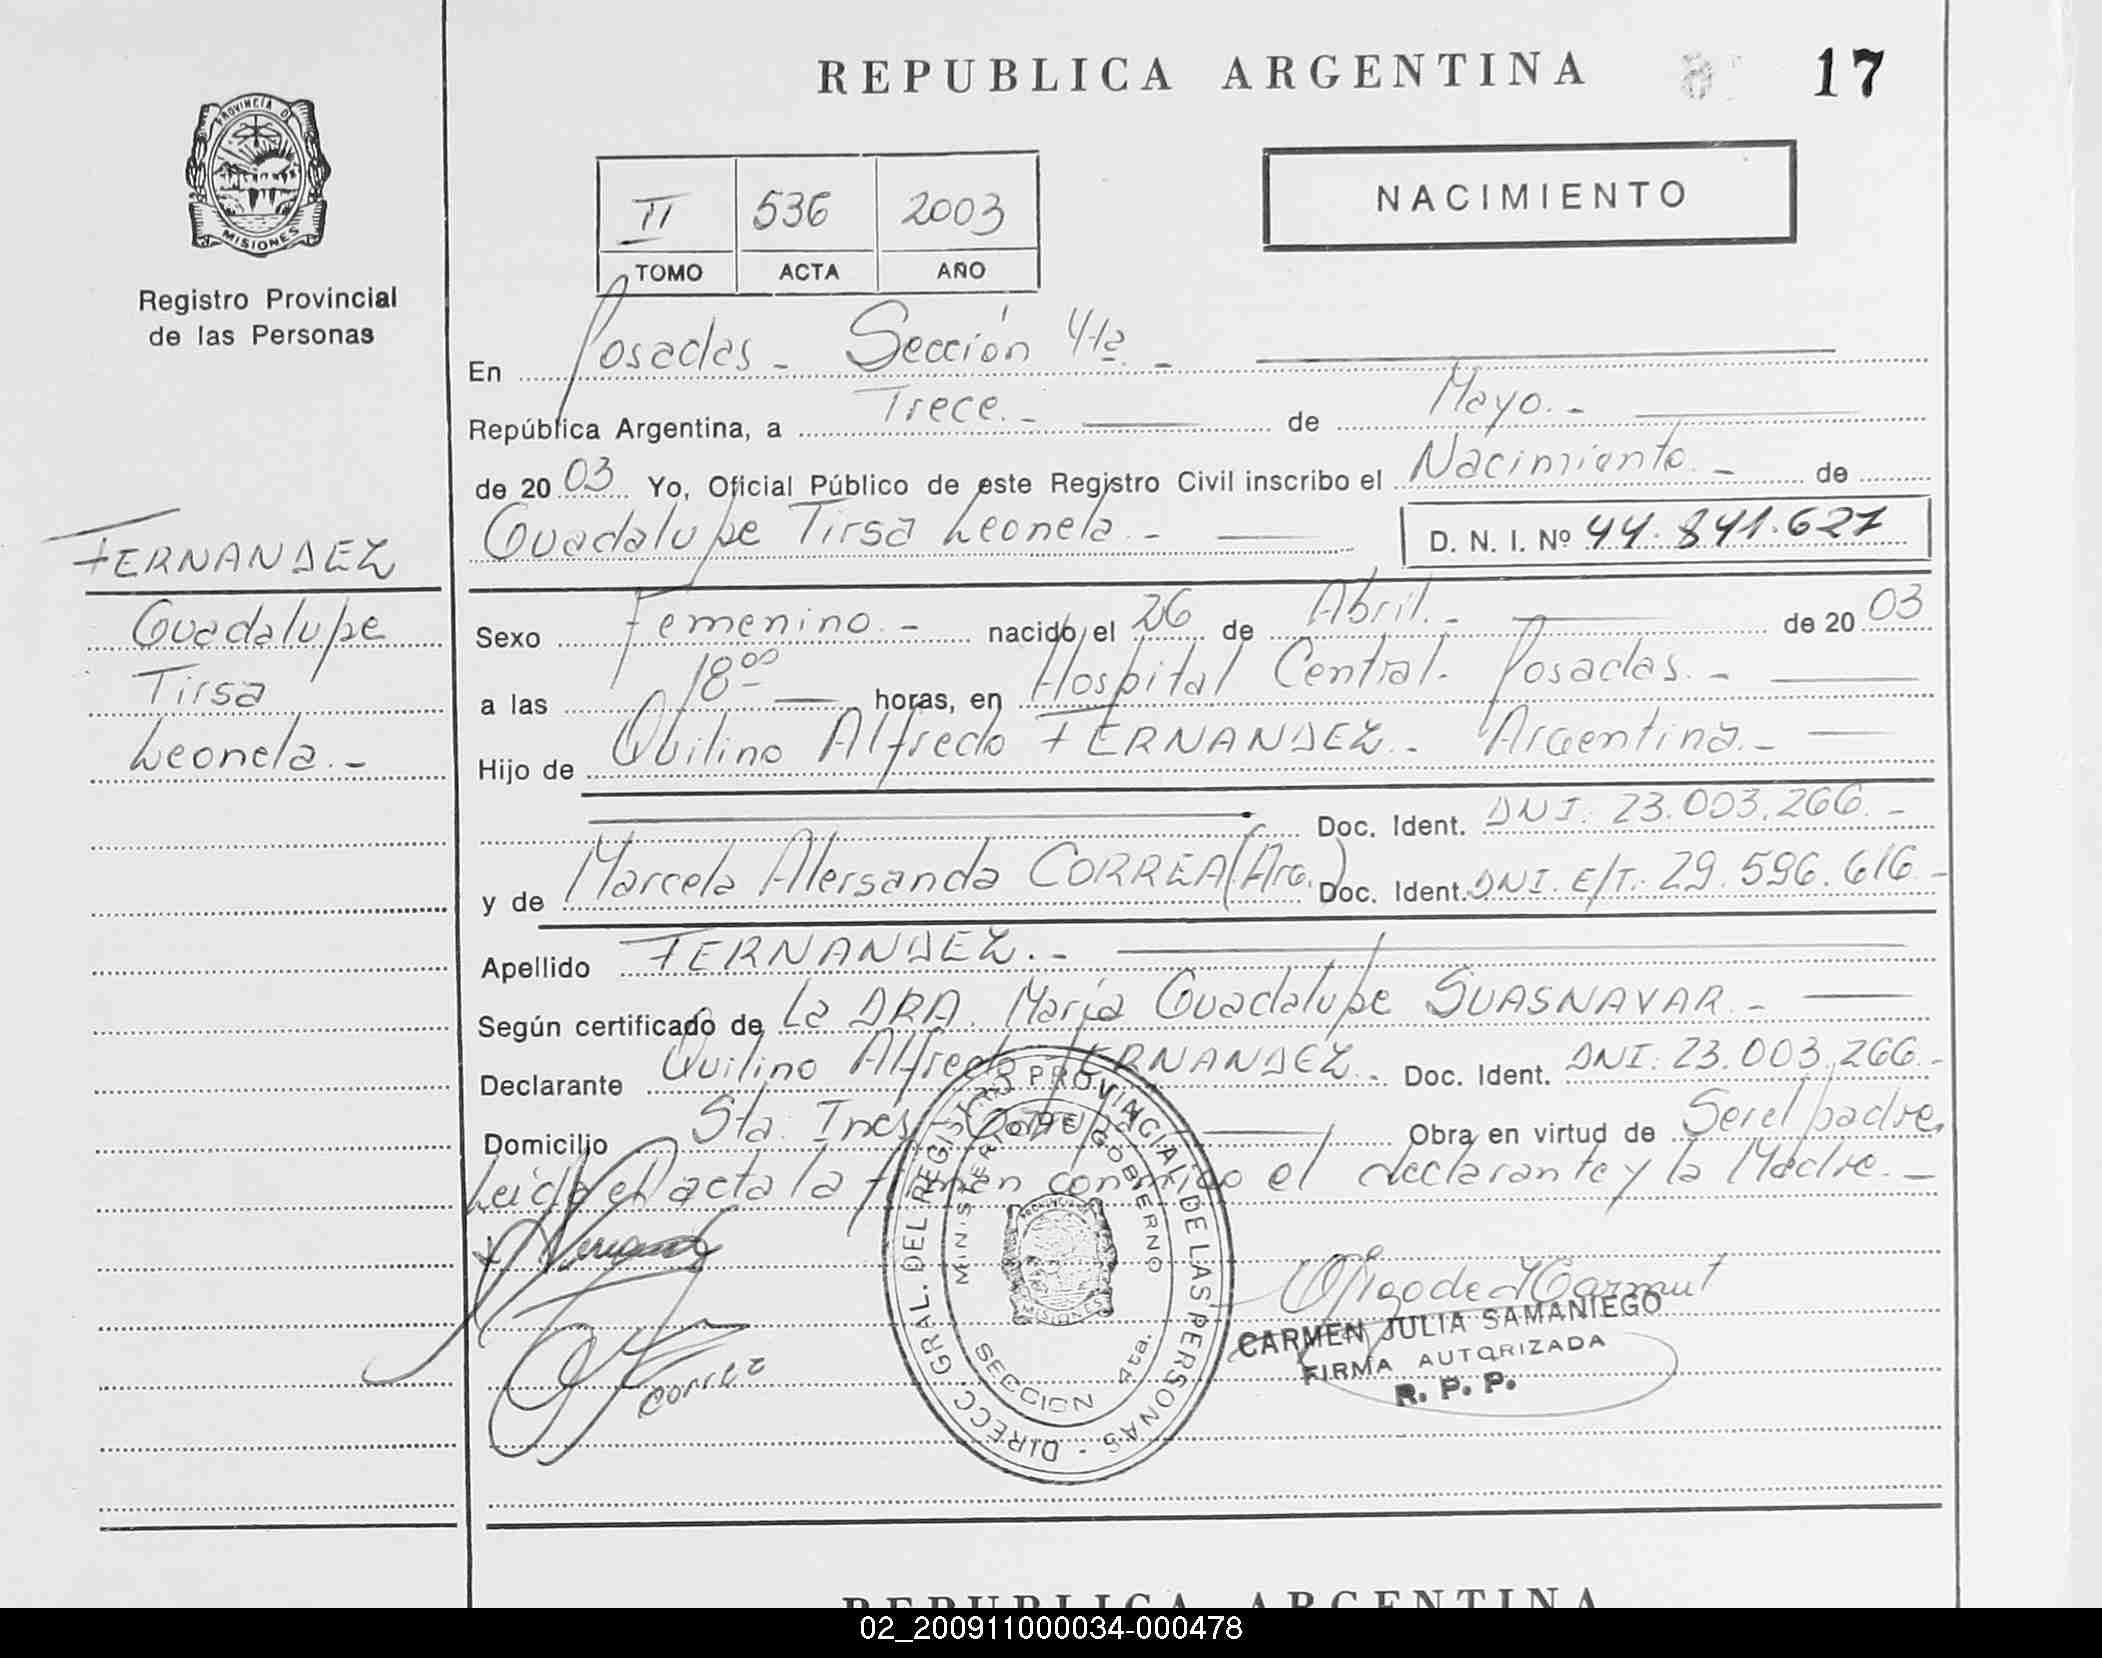 REPUBLICA ARGENTINA
17
PROVINCIA DE
MISIONES
Registro Provincial
de las Personas
II 536 2003
TOMO ACTA AÑO
NACIMIENTO
En Posadas - Sección 4ta. -
República Argentina, a Trece. - de Mayo. -
de 2003 Yo, Oficial Público de este Registro Civil inscribo el Nacimiento. - de
Guadalupe Tirsa Leonela. - D. N. I. Nº 44.841.627
FERNANDEZ
Guadalupe
Tirsa
Leonela. -
Sexo Femenino. - nacido el 26 de Abril. - de 2003
a las 18 00 horas, en Hospital Central. Posadas. -
Hijo de Quilino Alfredo FERNANDEZ. - Argentina. -
Doc. Ident. DNI. 23.003.266. -
y de Marcela Alersanda CORREA (Arg.) Doc. Ident. DNI. E/T. 29.596.616 -
Apellido FERNANDEZ. -
Según certificado de La DRA. María Guadalupe SUASNAVAR. -
Declarante Quilino Alfredo FERNANDEZ. Doc. Ident. DNI: 23.003.266. -
Domicilio Sta. Ines Obra en virtud de Ser el padre,
Leida el acta la firman conmigo el declarante y la Madre. -
Correa
DIRECC. GRAL. DEL REGISTRO PROVINCIAL DE LAS PERSONAS -
MINISTERIO DE GOBIERNO
SECCION 4ta.
CARMEN JULIA SAMANIEGO
FIRMA AUTORIZADA
R. P. P.
REPUBLICA ARGENTINA
02_200911000034-000478